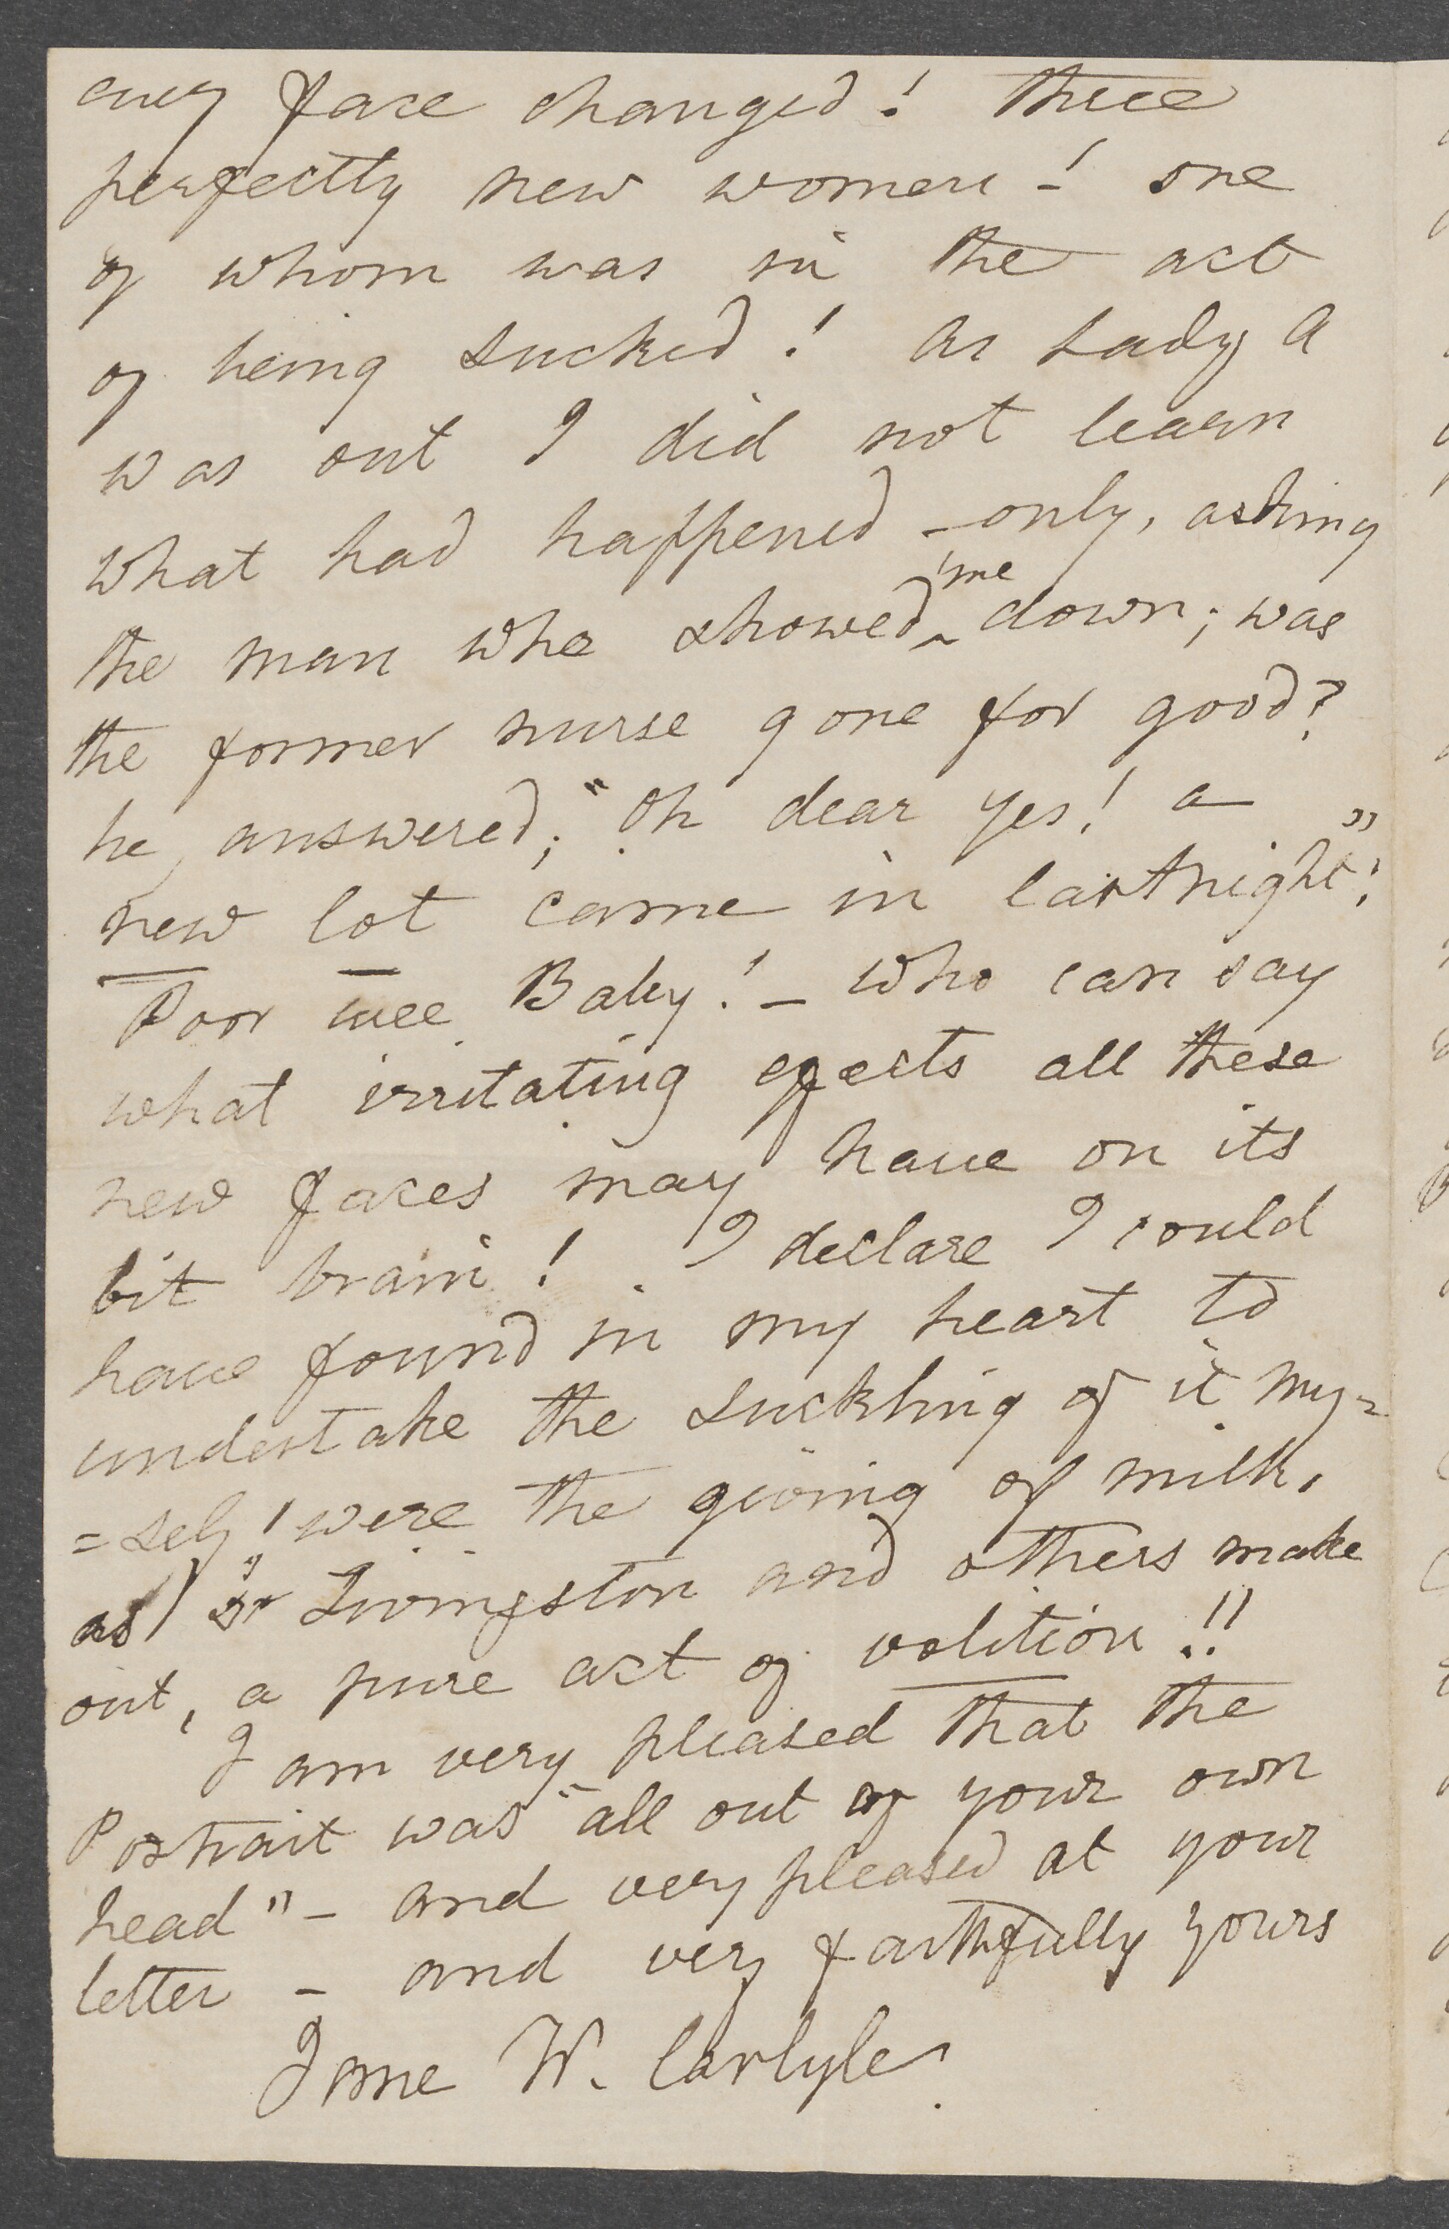 every face changed! three
perfectly new women–! one
of whom was in the act
of being sucked! As Lady A
was out I did not learn
what had happened – only, asking
the man who showed ^me down; was
the former nurse gone for good?
he answered; "Oh dear yes! a
new lot came in last night"!
Poor wee Baby! – who can say
what irritating effects all these
new faces may have on its
bit brain! I declare I could
have found in my heart to
undertake the suckling of it my=
=self! were the giving of milk,
as Dr Livingston and others make
out, a pure act of volition!!
I am very pleased that the
Portrait was "all out of your own
head" – and very pleased at your
letter – and very faithfully yours
Jane W. Carlyle.